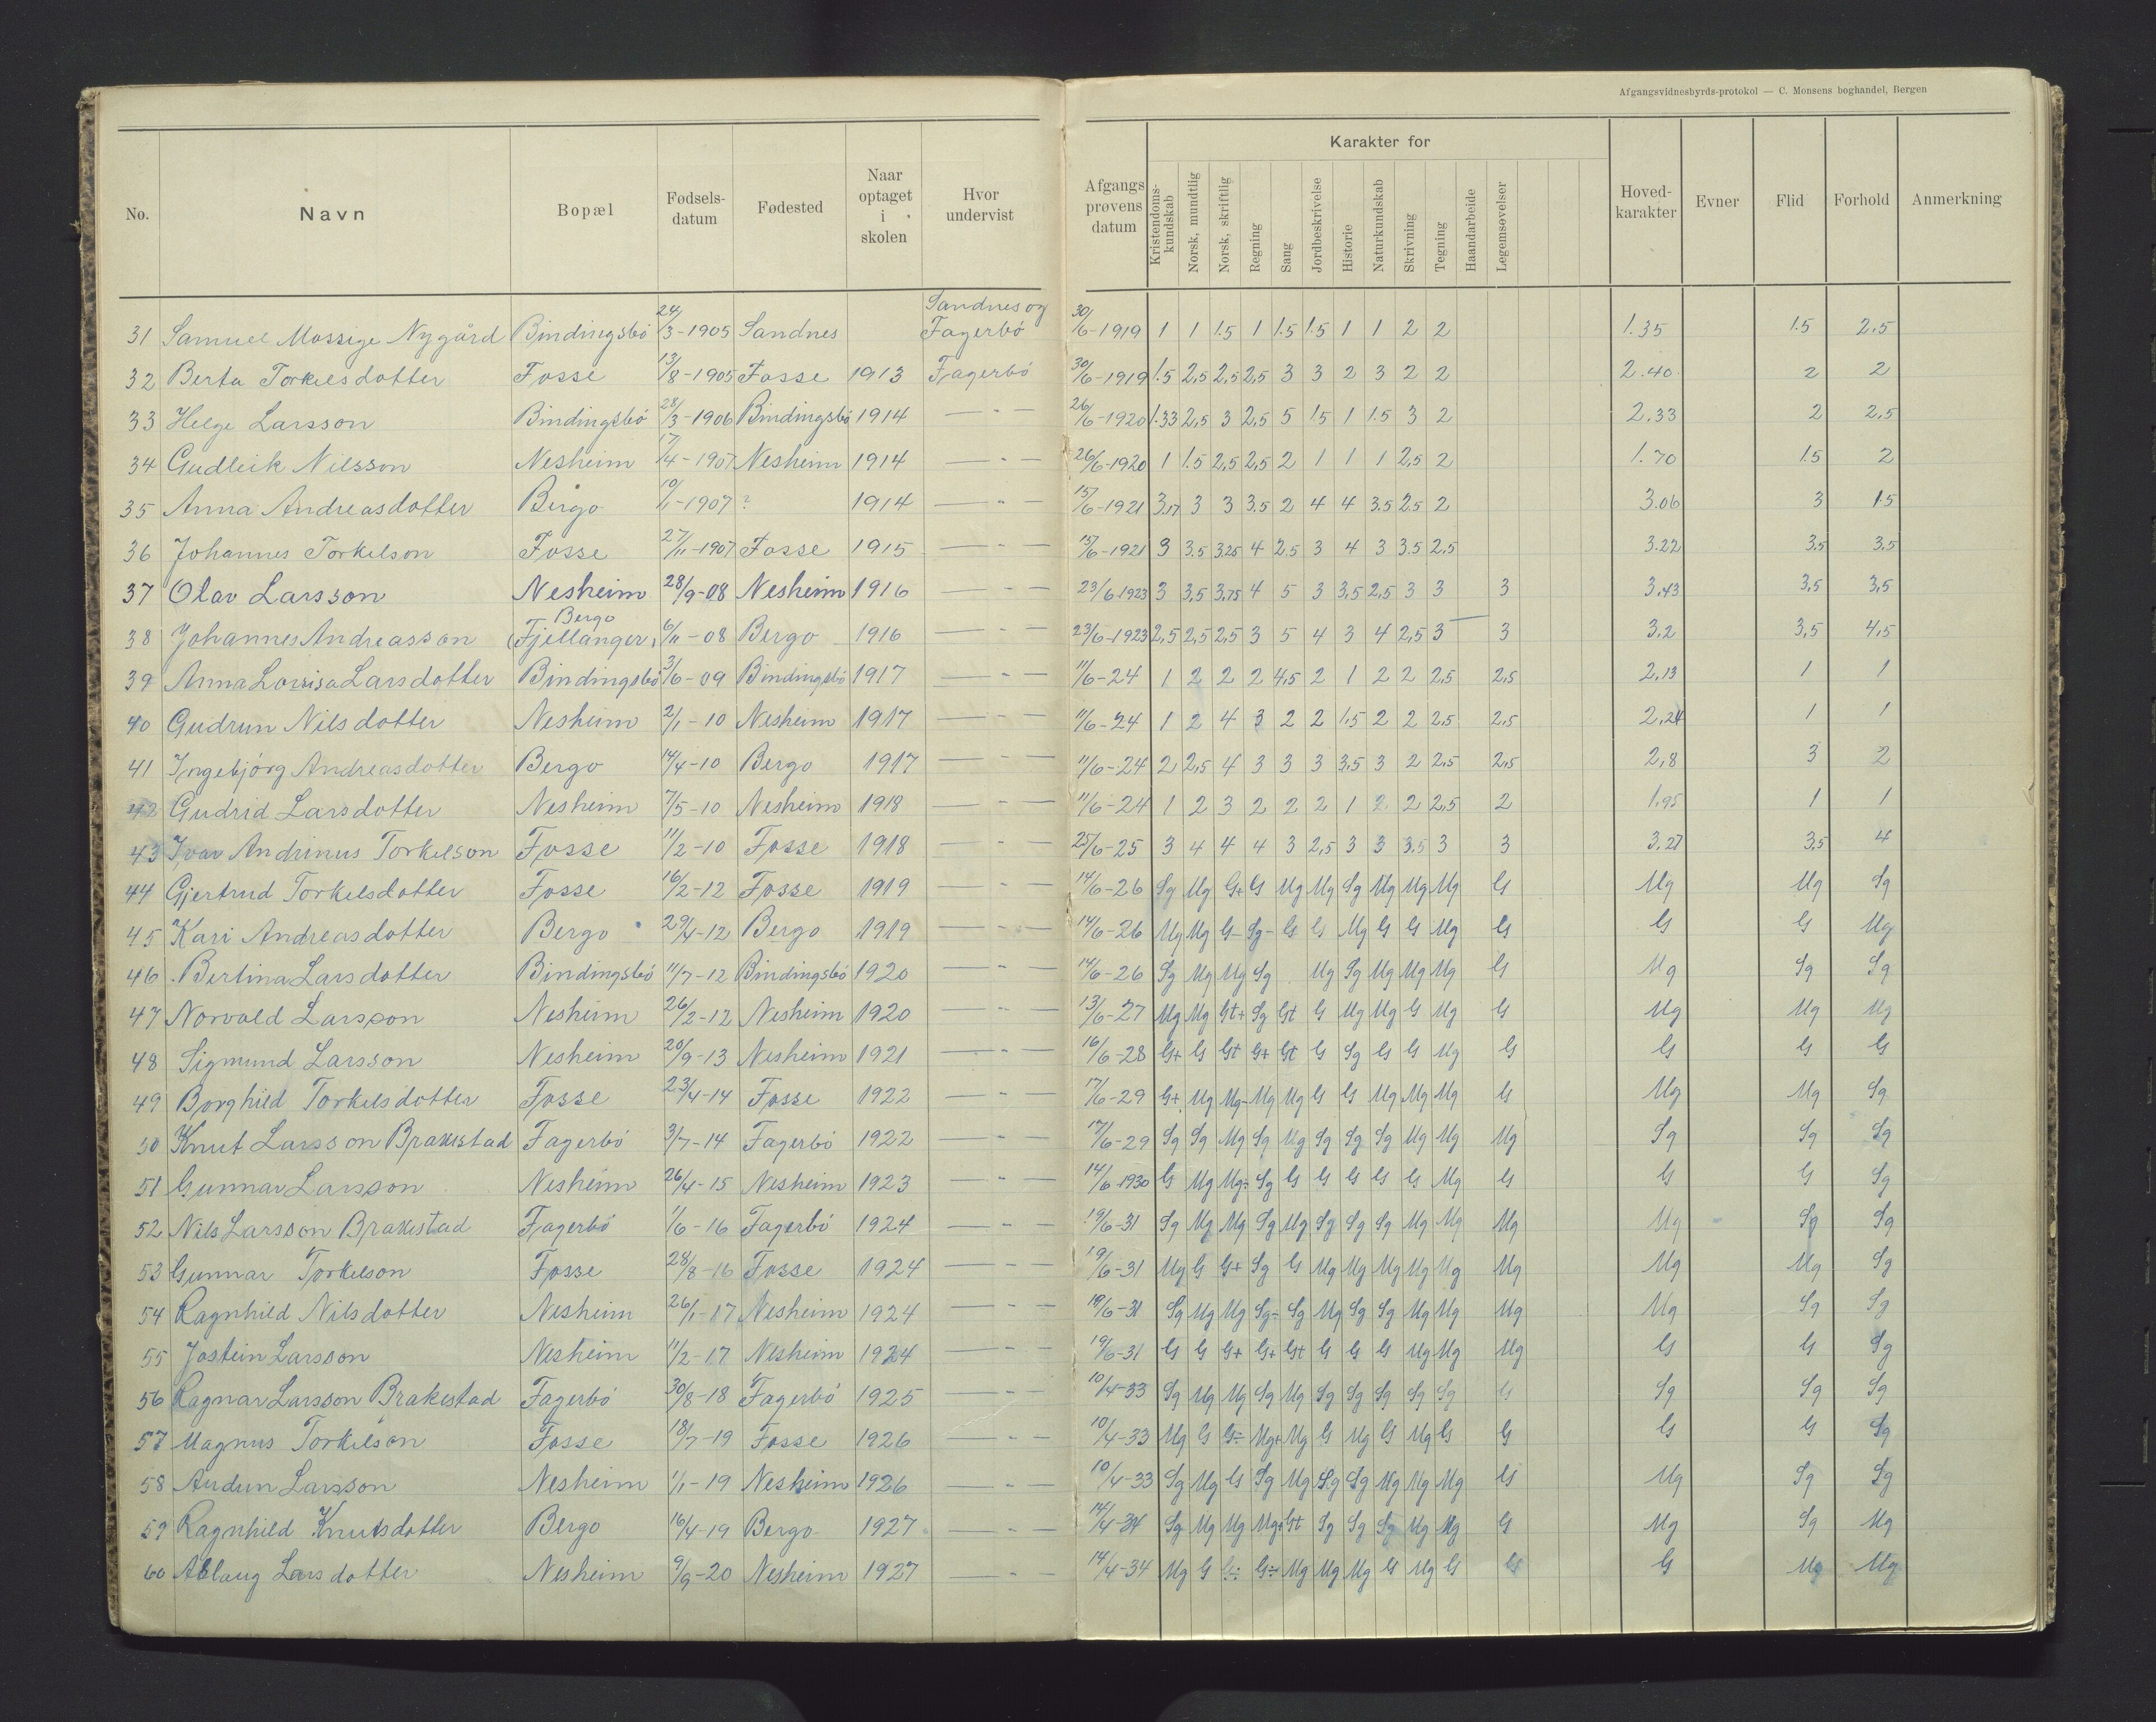 Afgangsvidnesbyrds-protokol — C. Monsens boghandel, Bergen
No. Navn Bopæl Fødselsdatum Fødested Naar optaget i skolen Hvor undervist Afgangsprøvens datum Karakter for Hovedkarakter Evner Flid Forhold Anmerkning
Kristendomskundskab Norsk, mundtlig Norsk, skriftlig Regning Sang Jordbeskrivelse Historie Naturkundskab Skrivning Tegning Haandarbeide Legemsøvelser
31 Samuel Mossige Nygård Bindingsbö 24/3-1905 Sandnes Sandnes og Fagerbö 30/6-1919 1 1 1.5 1 1.5 1.5 1 1 2 2 1.35 1.5 2,5
32 Berta Torkelsdotter Fosse 13/8-1905 Fosse 1913 Fagerbö 30/6-1919 1.5 2,5 2,5 2,5 3 3 2 3 2 2 2.40 2 2
33 Helge Larsson Bindingsbö 28/3-1906 Bindingsbö 1914 — " — 26/6-1920 1.33 2,5 3 2,5 5 1.5 1 1.5 3 2 2.33 2 2,5
34 Gudleik Nilsson Nesheim 17/4-1907 Nesheim 1914 — " — 26/6-1920 1 1.5 2,5 2,5 2 1 1 1 2,5 2 1.70 1.5 2
35 Anna Andreasdotter Birgo 10/1-1907 ? 1914 — " — 15/6-1921 3,17 3 3 3.5 2 4 4 3.5 2.5 2 3.06 3 1.5
36 Johannes Torkelson Fosse 27/11-1907 Fosse 1915 — " — 15/6-1921 3 3.5 3.25 4 2.5 3 4 3 3.5 2,5 3.22 3,5 3,5
37 Olav Larsson Nesheim 28/9-08 Nesheim 1916 — " — 23/6-1923 3 3,5 3,75 4 5 3 3,5 2,5 3 3 3 3,43 3,5 3,5
38 Johannes Andreasson Bergo (Fjellanger) 6/11-08 Bergo 1916 — " — 23/6-1923 2,5 2,5 2,5 3 5 4 3 4 2,5 3 — 3 3,2 3,5 4,5
39 Anna Lovisa Larsdotter Bindingsbö 3/6-09 Bindingsbö 1917 — " — 11/6-24 1 2 2 2 4,5 2 1 2 2 2,5 2,5 2,13 1 1
40 Gudrun Nilsdotter Nesheim 2/1-10 Nesheim 1917 — " — 11/6-24 1 2 4 3 2 2 1,5 2 2 2,5 2,5 2,24 1 1
41 Ingebjörg Andreasdotter Bergo 14/4-10 Bergo 1917 — " — 11/6-24 2 2,5 4 3 3 3 3,5 3 2 2,5 2,5 2,8 3 2
42 Gudrid Larsdotter Nesheim 7/5-10 Nesheim 1918 — " — 11/6-24 1 2 3 2 2 2 1 2 2 2,5 2 1,95 1 1
43 Ivar Andrinus Torkelson Fosse 11/2-10 Fosse 1918 — " — 25/6-25 3 4 4 4 3 2,5 3 3 3,5 3 3 3,27 3,5 4
44 Gjertrud Torkelsdotter Fosse 16/2-12 Fosse 1919 — " — 14/6-26 Sg Mg G+ G Mg Mg Sg Mg Mg Mg G Mg Mg Sg
45 Kari Andreasdotter Bergo 29/4-12 Bergo 1919 — " — 14/6-26 Mg Mg G- Sg- G G Mg G G Mg G G G Mg
46 Bertina Larsdotter Bindingsbö 11/7-12 Bindingsbö 1920 — " — 14/6-26 Sg Mg Mg Sg Mg Sg Mg Mg Mg G Mg Sg Sg
47 Norvald Larsson Nesheim 26/2-12 Nesheim 1920 — " — 13/6-27 Mg Mg G++ Sg G+ G Mg Mg G Mg G Mg Mg Mg
48 Sigmund Larsson Nesheim 20/9-13 Nesheim 1921 — " — 16/6-28 G+ G G+ G+ G+ G Sg G G Mg G G G G
49 Borghild Torkelsdotter Fosse 23/4-14 Fosse 1922 — " — 17/6-29 G+ Mg Mg- Mg Mg G G Mg Mg Mg G Mg Mg Sg
50 Knut Larsson Brakestad Fagerbö 3/7-14 Fagerbö 1922 — " — 17/6-29 Sg Sg Mg Sg Mg Sg Sg Sg Mg Mg Mg Sg Sg Sg
51 Gunnar Larsson Nesheim 26/4-15 Nesheim 1923 — " — 14/6-1930 G Mg Mg÷ Sg G G G G G Mg G G G Sg
52 Nils Larsson Brakestad Fagerbö 1/6-16 Fagerbö 1924 — " — 19/6-31 Sg Mg Mg Sg Mg Sg Sg Sg Mg Mg Mg Mg Sg Sg
53 Gunnar Torkelson Fosse 28/8-16 Fosse 1924 — " — 19/6-31 Mg G G+ Sg G Mg Mg Mg Mg Mg Mg Mg Mg Sg
54 Ragnhild Nilsdotter Nesheim 26/1-17 Nesheim 1924 — " — 19/6-31 Sg Mg Mg Sg÷ Sg Mg Sg Sg Mg Mg Mg Mg Sg Sg
55 Jostein Larsson Nesheim 11/2-17 Nesheim 1924 — " — 19/6-31 G G G+ G+ G+ G G G Mg Mg Mg G G Sg
56 Ragnar Larsson Brakestad Fagerbö 30/8-18 Fagerbö 1925 — " — 10/4-33 Sg Mg Mg Sg Mg Sg Sg Sg Sg Sg G Sg Sg Sg
57 Magnus Torkelson Fosse 18/7-19 Fosse 1926 — " — 10/4-33 Mg G G÷ Mg+ Mg G Mg G Mg G G G G Sg
58 Audun Larsson Nesheim 1/1-19 Nesheim 1926 — " — 10/4-33 Sg Mg G Sg Mg Sg Sg Mg Mg Mg G Mg Sg Sg
59 Ragnhild Knutsdotter Bergo 16/4-19 Bergo 1927 — " — 14/4-34 Sg Mg Mg Mg+ G+ Sg Sg Sg Mg Mg G Mg Sg Mg
60 Aslaug Larsdotter Nesheim 9/9-20 Nesheim 1927 — " — 14/4-34 Mg G G÷ G÷ Mg Mg Mg G Mg G G G Mg Mg